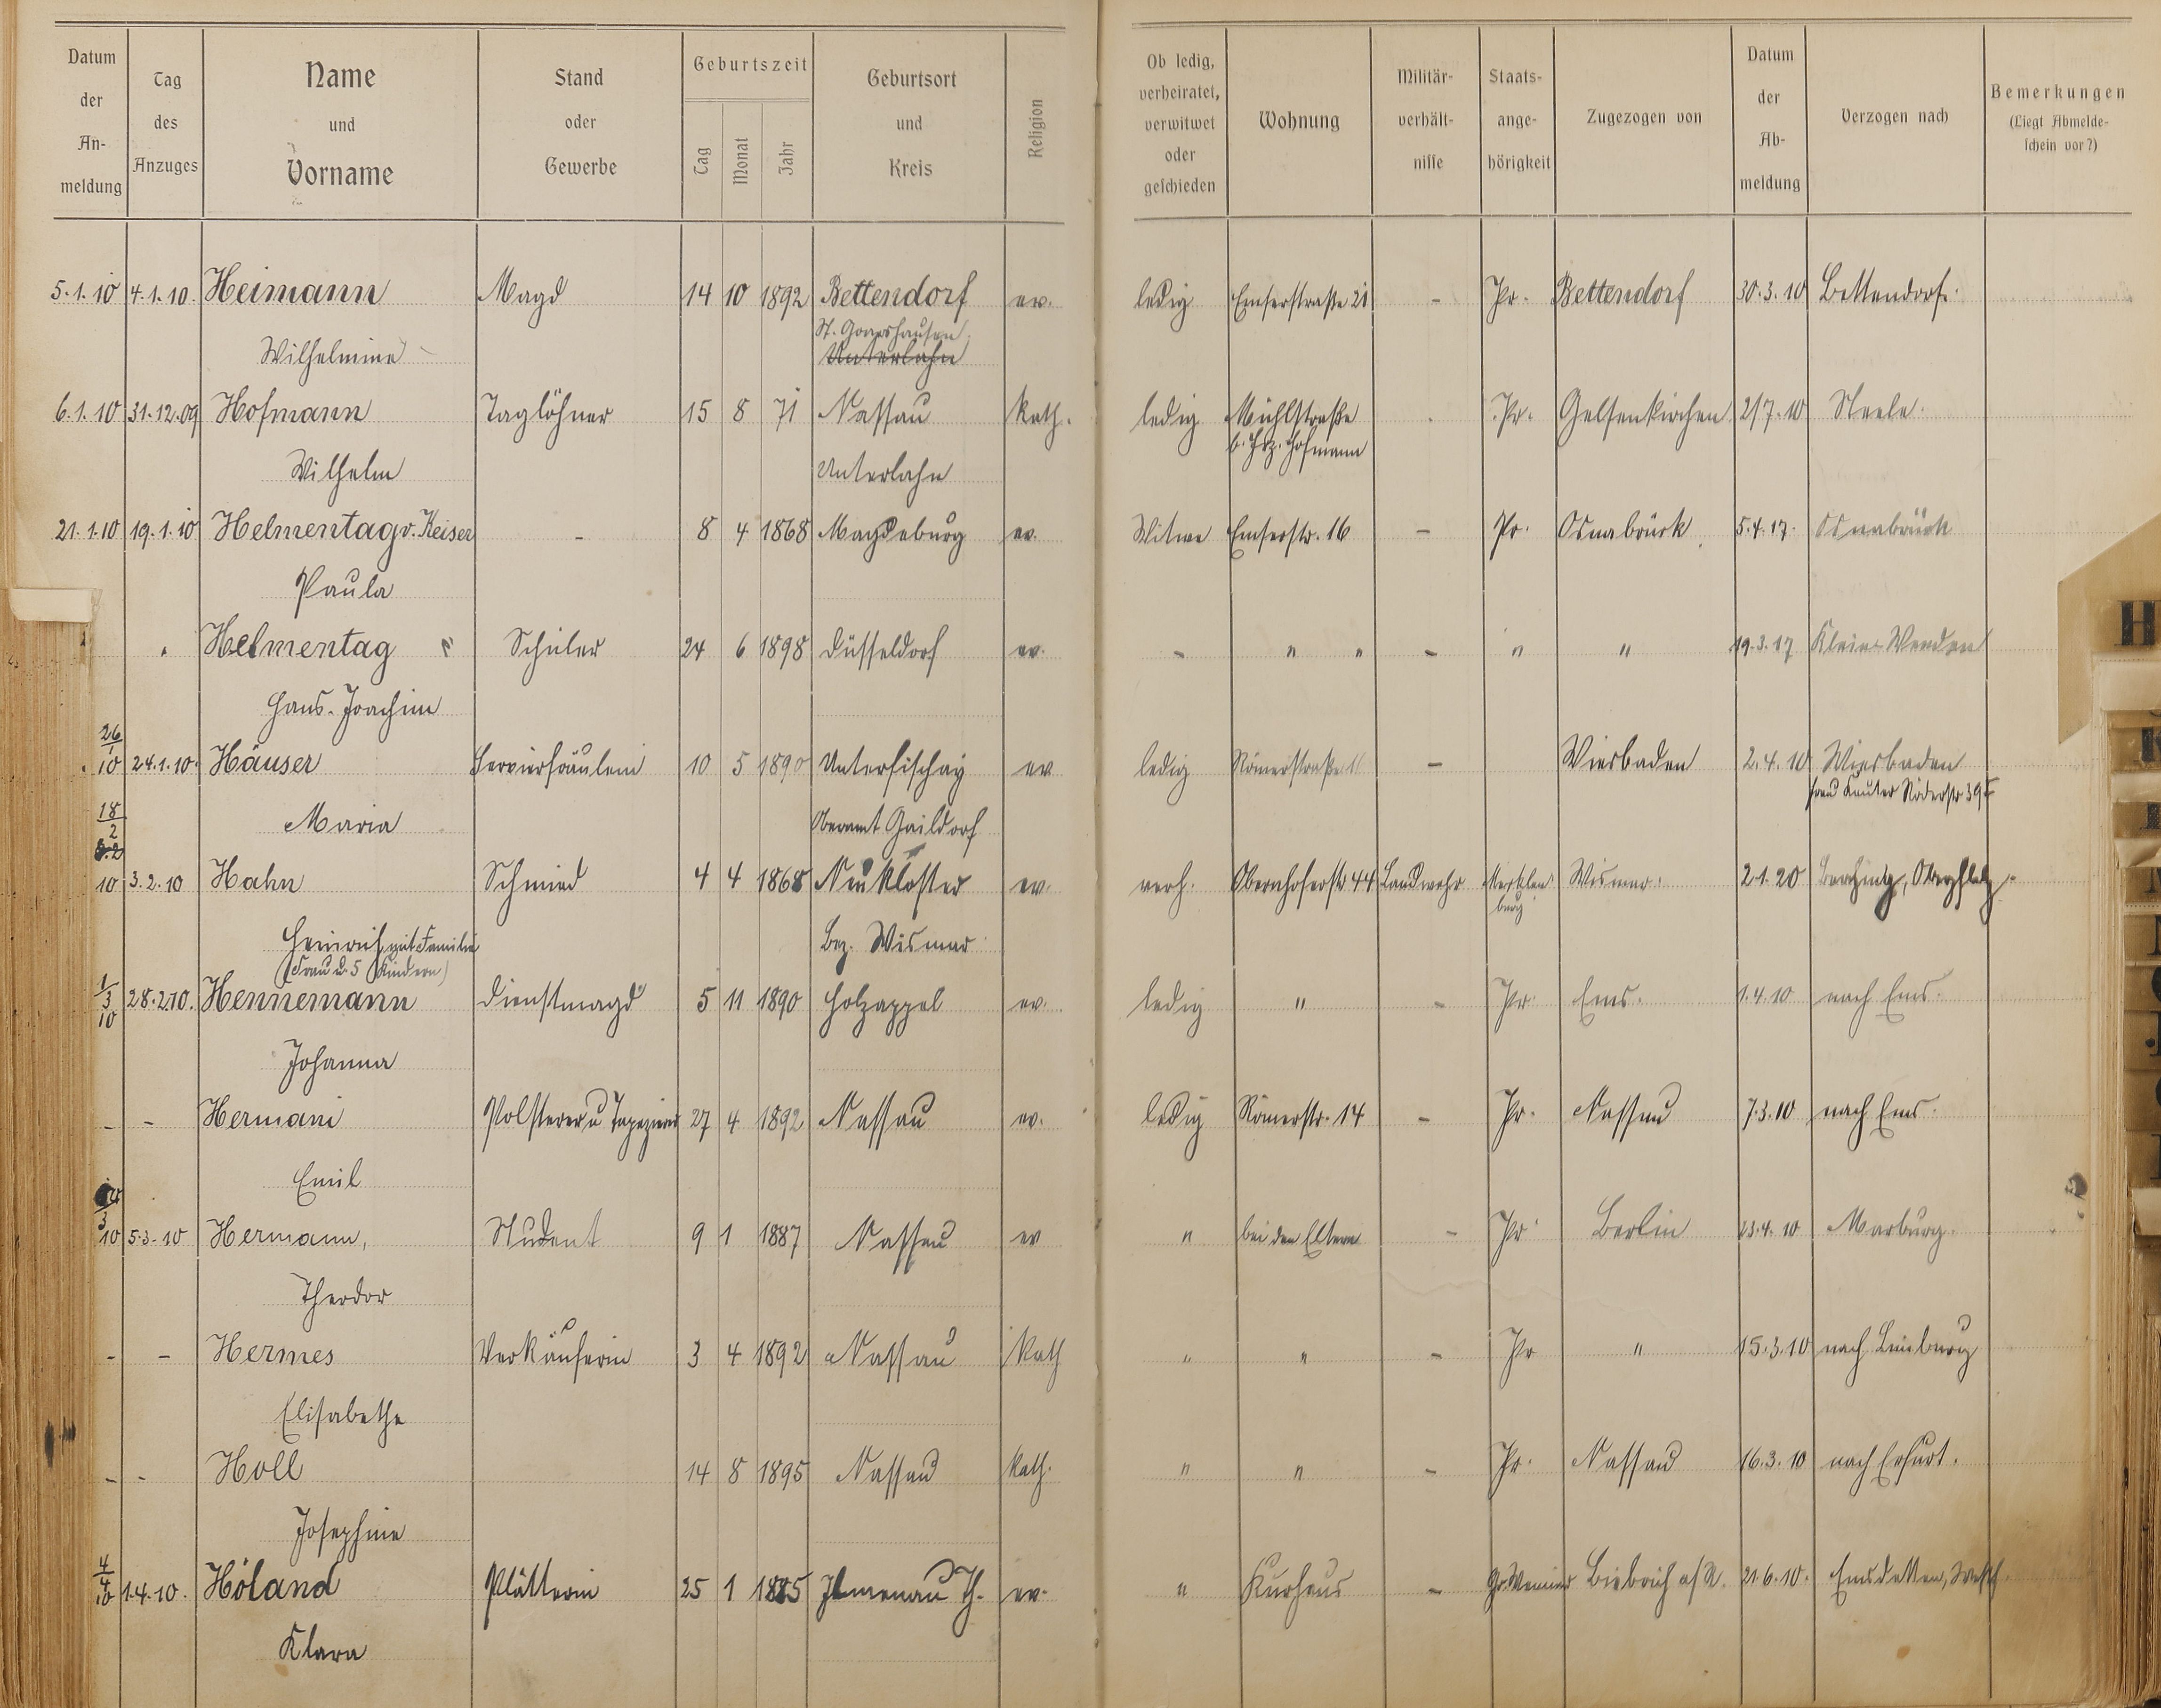 Datum der Anmeldung | Tag des Anzuges | Name und Vorname | Stand oder Gewerbe | Geburtszeit Tag Monat Jahr | Geburtsort und Kreis | Religion | Ob ledig, verheiratet, verwitwet oder geschieden | Wohnung | Militärverhältnisse | Staatsangehörigkeit | Zugezogen von | Datum der Abmeldung | Verzogen nach | Bemerkungen (Liegt Abmeldeschein vor?)
5.1.10 4.1.10. Heimann Magd 14 10 1892 Bettendorf ev. ledig Emserstraße 21 - Pr. Bettendorf 30.3.10 Bettendorf.
St. Goarshausen.
Wilhelmine Unterlahn
6.1.10 31.12.09 Hofmann Taglöhner 15 8 71 Nassau kath. ledig Mühlstraße Pr. Gelsenkirchen 2/7.10 Steele.
b. Hofmann
Wilhelm Unterlahn
21.1.10 19.1.10 Helmentag v. Keiser - 8 4 1868 Magdeburg ev. Witwe Emserstr. 16 - Pr. Osnabrück 5.4.17. Osnabrück
Paula
Helmentag " Schüler 24 6 1898 Düsseldorf ev. - " " - " " 19.3.17 Klein Wenden
Hans-Joachim
26/1 10 24.1.10. Häuser Servierfräulein 10 5 1890 Unterfischay ev ledig Römerstraße - Wiesbaden 2.4.10 Wiesbaden
Frau Röderstr 39
Maria Oberamt Gaildorf
18/2 10 3.2.10 Hahn Schmied 4 4 1868 Neukloster ev. verh. Obernhoferstr 44 Landwehr Mecklenburg Wismar. 2.1.20
Heinrich mit Familie Bez. Wismar
(Frau u. 5 Kindern)
1/3 10 28.2.10. Hennemann Dienstmagd 5 11 1890 Holzappel ev. ledig " - Pr. Ems. 1.4.10 nach Ems.
Johanna
- - Hermani Polsterer u Tapezierer 27 4 1892 Nassau ev. ledig Römerstr. 14 - Pr. Nassau 7.3.10 nach Ems.
Emil
3 10 5.3.10 Hermann, Student 9 1 1887 Nassau ev " bei den Eltern - Pr. Berlin 23.4.10 Marburg.
Theodor
- - Hermes Verkäuferin 3 4 1892 Nassau Kath " " - Pr " 15.3.10 nach Limburg
Elisabethe
- - Holl 14 8 1895 Nassau kath. " " - Pr. Nassau 16.3.10 nach Erfurt.
Josephine
4/4 10 1.4.10. Höland Plätterin 25 1 1885 Ilmenau Th. ev. " Kurhaus - Gr. Weimar Biebrich a/R. 21.6.10. Emsdetten, Westf.
Klara
H